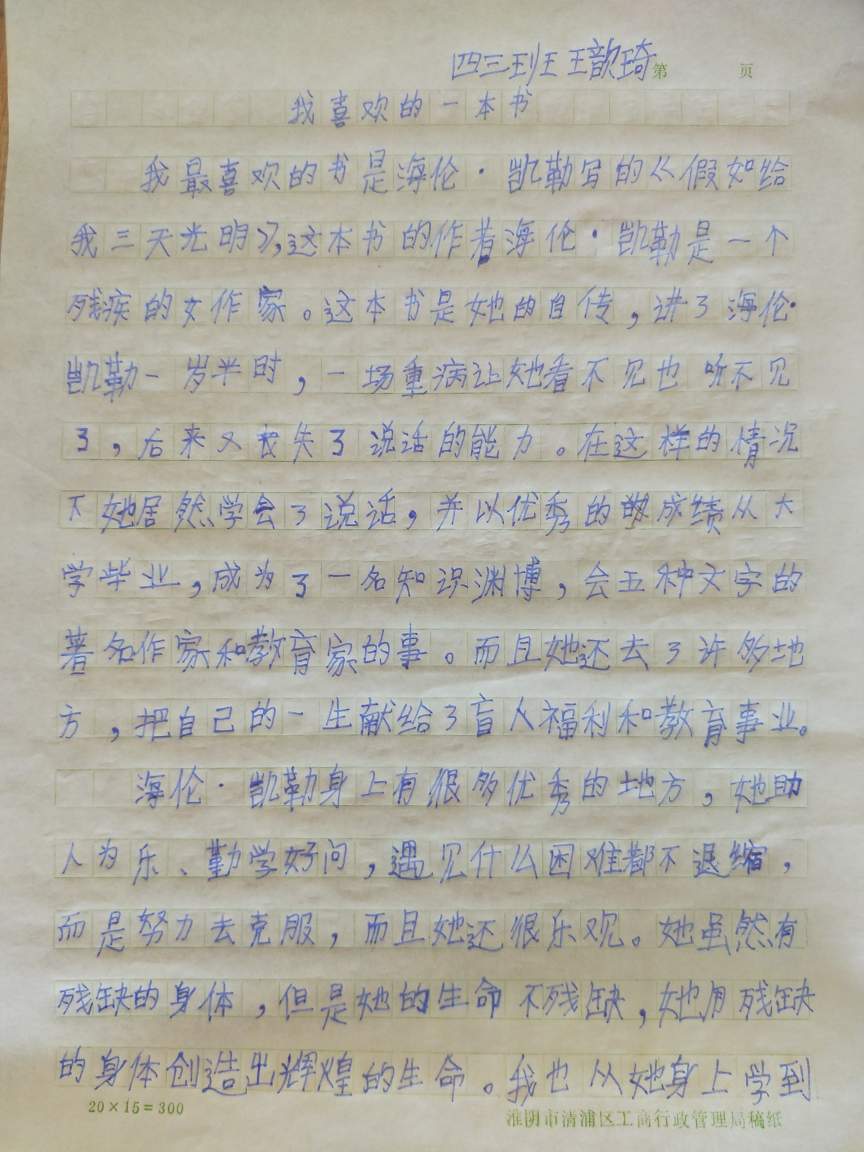 四三班王歆琦第 页
我喜欢的一本书
我最喜欢的书是海伦·凯勒写的《假如给
我三天光明》,这本书的作者海伦·凯勒是一个
残疾的女作家。这本书是她的自传,讲了海伦·
凯勒一岁半时,一场重病让她看不见也听不见
了,后来又丧失了说话的能力。在这样的情况
下她居然学会了说话,并以优秀的成绩从大
学毕业,成为了一名知识渊博,会五种文字的
著名作家和教育家的事。而且她还去了许多地
方,把自己的一生献给了盲人福利和教育事业。
海伦·凯勒身上有很多优秀的地方,她助
人为乐、勤学好问,遇见什么困难都不退缩,
而是努力去克服,而且她还很乐观。她虽然有
残缺的身体,但是她的生命不残缺,她用残缺
的身体创造出辉煌的生命。我也从她身上学到
20×15=300 淮阴市清浦区工商行政管理局稿纸